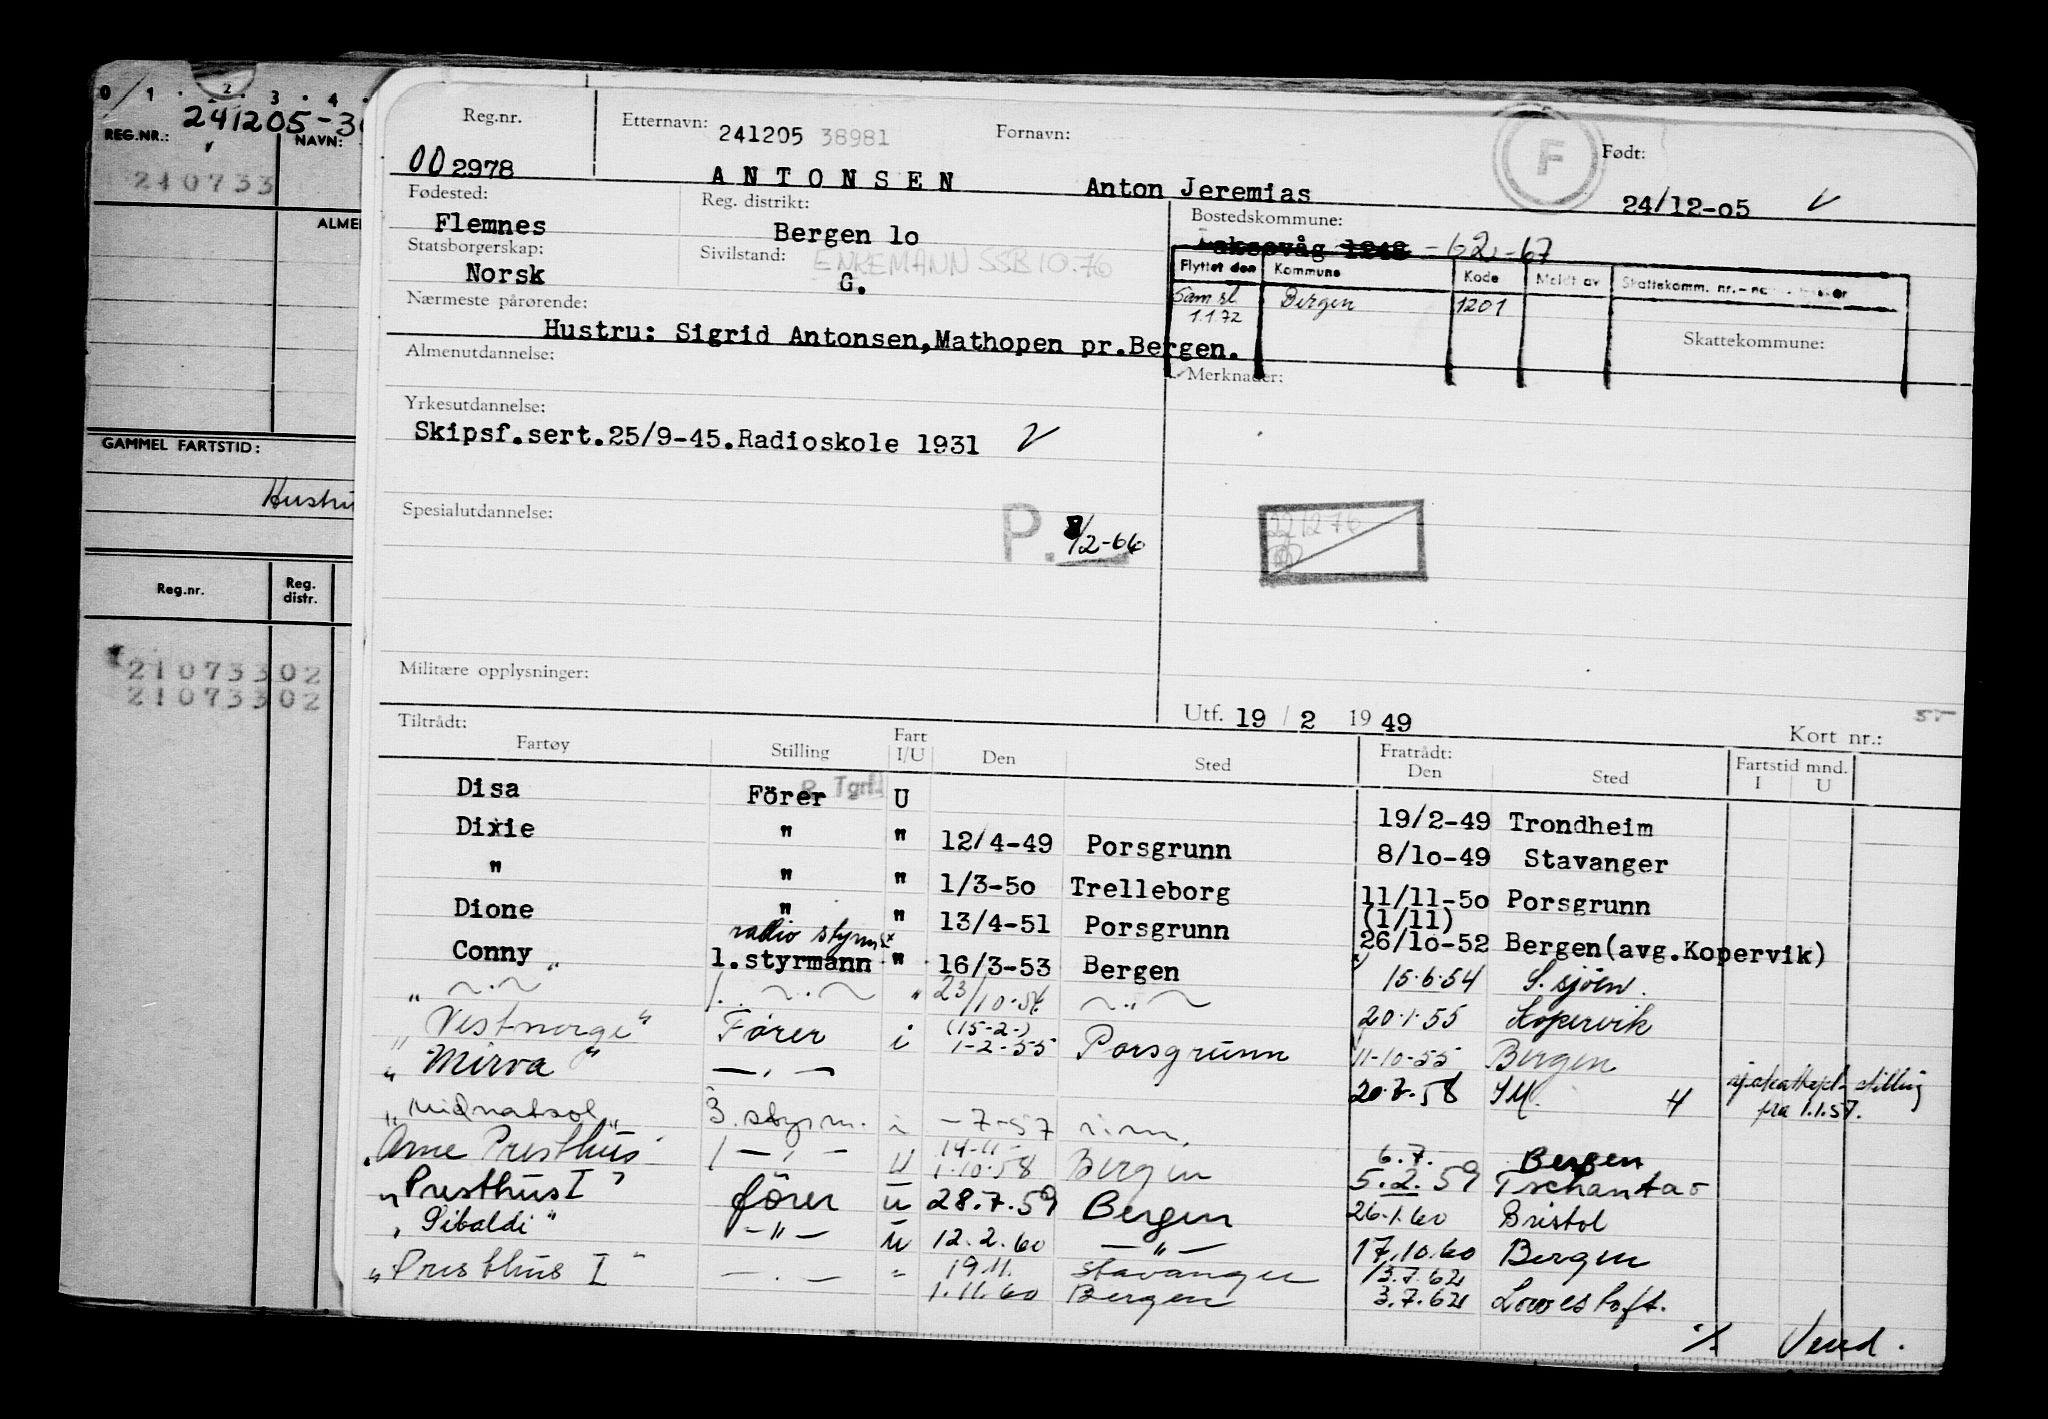 0 / 1 . 2 . 3 . 4 .
REG.NR.: 241205-3
NAVN:
210733
ALME
GAMMEL FARTSTID:
Hustr
Reg.nr. Reg. distr.
21073302
21073302
Reg.nr. Etternavn: 241205 38981 Fornavn: F Født:
002978 ANTONSEN Anton Jeremias 24/12-05
Fødested: Reg. distrikt: Bostedskommune:
Flemnes Bergen 10 Laksevåg 1248 -62-67
Statsborgerskap: Sivilstand: ENKEMANN SSB 10.76
Norsk G.
Flyttet den Kommune Kode Meldt av Skattekomm. nr.
Sam sl 1.1.72 Bergen 1201
Nærmeste pårørende: Skattekommune:
Hustru: Sigrid Antonsen,Mathopen pr.Bergen.
Almenutdannelse: Merknader:
Yrkesutdannelse:
Skipsf.sert.25/9-45.Radioskole 1931
Spesialutdannelse: P. 8/2-66 221276
Militære opplysninger:
Utf. 19 / 2 19 49 Kort nr.:
Tiltrådt: Fratrådt:
Fartøy Stilling Fart I/U Den Sted Den Sted Fartstid mnd. I U
Disa Förer R. Tgrf. U 19/2-49 Trondheim
Dixie " " 12/4-49 Porsgrunn 8/10-49 Stavanger
" " " 1/3-50 Trelleborg 11/11-50 Porsgrunn
(1/11)
Dione " " 13/4-51 Porsgrunn 26/10-52 Bergen(avg.Kopervik)
radio styrm
Conny 1.styrmann " 16/3-53 Bergen 15.6.54 S.sjöen.
" — " — " 1. — " — " 23/10-54 — " — 20.1.55 Kopervik
" Vestnorge " Fører i (15-2-) 1-2-55 Porsgrunn 11-10-55 Bergen
" Mirva " — " — 20.7.58 H fra 1.1.57.
" Midnatsol " 3. styrm. i -7-57
" Arne Presthus " 1 — " — U 14-11- 1.10.58 Bergen 6.7. Bergen
5.2.59
" Presthus I " fører u 28.7.59 Bergen 26.1.60 Bristol
" Sibaldi " — " — u 12.2.60 — " — 17.10.60 Bergen
" Presthus I " — " — " 19.11. Stavanger 13.7.62
1.11.60 Bergen 3.7.62 Lowestoft.
Vend.